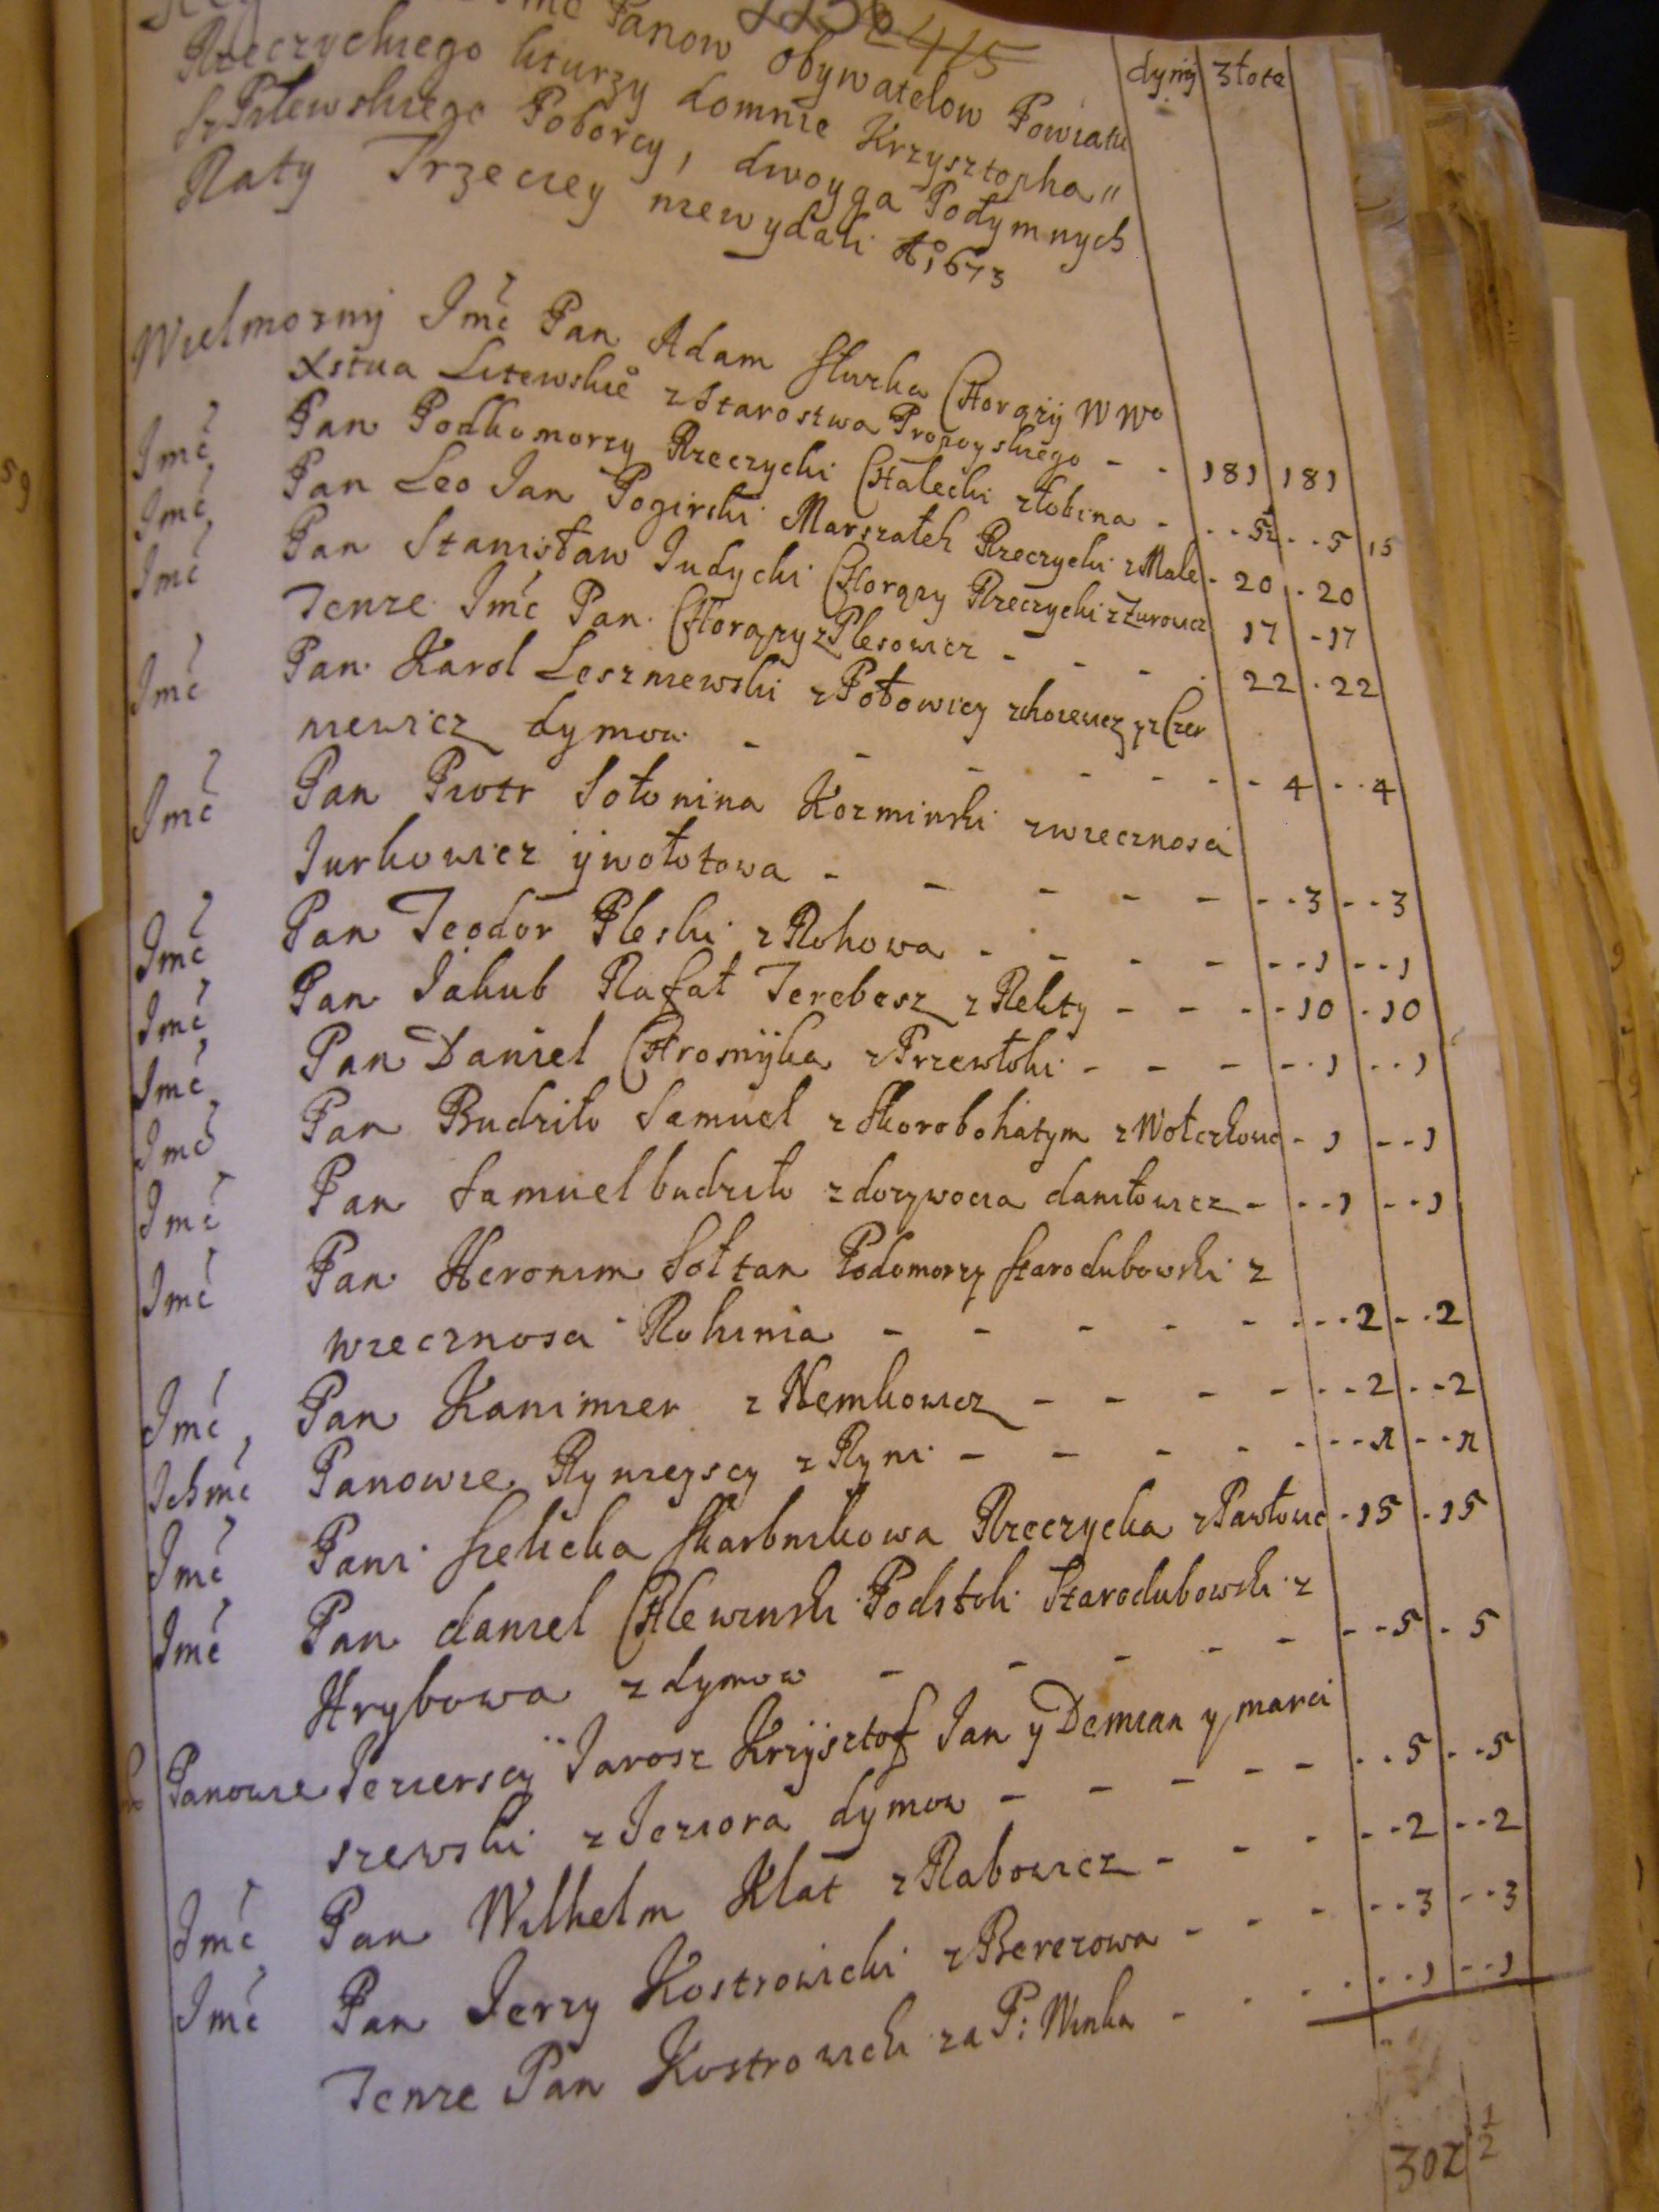 Ime Panow Obywatelow Powiatu
Rzeczyckiego kturzy domnie Krzysztopha
Poborcy, dwoyga Podymnych
Raty Trzeciey niewydali Ao 1673
dymy złote
Wielmozny Jmć Pan Adam Słuzka Chorąży W Wo
Xstwa Litewskie z Starostwa Propoyskiego - - 181 181
Jmć Pan Podkomorzy Rzeczycki Chalecki z Łobina - - - 5½ - - 5 15
Jmć Pan Leo Jan Pogirski Marszałek Rzeczycki z Male - 20 - 20
Jmć Pan Stanisław Judycki Chorązy Rzeczycki z Zurowicz 17 - 17
Tenze Jmć Pan Chorązy z Plesowicz - - - 22 - 22
Jmć Pan Karol Leszniewski z Połowicy y z Czer
niewicz dymow - - - - - - - 4 - - 4
Jmć Pan Piotr Sołonina Kozminski z wiecznosci
Jurkowicz ij wołotowa - - - - - - - 3 - - 3
Jmć Pan Teodor Pleski z Rohowa - - - - - - 1 - - 1
Jmć Pan Jakub Rafał Terebesz z Rekty - - - - 10 - 10
Jmć Pan Daniel Chrosnijka z Przewłoki - - - - - 1 - - 1
Jmć Pan Budziło Samuel z Skorobohatym z Wołczkowic - 1 - - 1
Jmć Pan Samuel budziło z dozywocia daniłowicz - - - 1 - - 1
Jmć Pan Heronim Sołtan Podomorzy starodubowski z
wiecznosci Rohinia - - - - - - - - 2 - - 2
Jmć Pan Kanimier z Nemkowicz - - - - - - 2 - - 2
Ichmć Panowie Rynieyscy z Ryni - - - - - - - 1 - - 1
Jmć Pani Sielicka skarbnikowa Rzeczycka z Pawłowic - 15 - 15
Jmć Pan daniel Chlewinski Podstoli Starodubowski z
Hrybowa z dymow - - - - - - - 5 - 5
Panowie Jezierscij Jarosz Krzijsztof Jan y Demian y marci
szewski z Jeziora dymow - - - - - - - 5 - - 5
Jmć Pan Wilhelm Klat z Rabowicz - - - - - 2 - - 2
Jmć Pan Jerzy Kostrowicki z Berezowa - - - - - 3 - - 3
Tenze Pan Kostrowicki za P: Winka - - - - - - 1 - - 1
302 ½